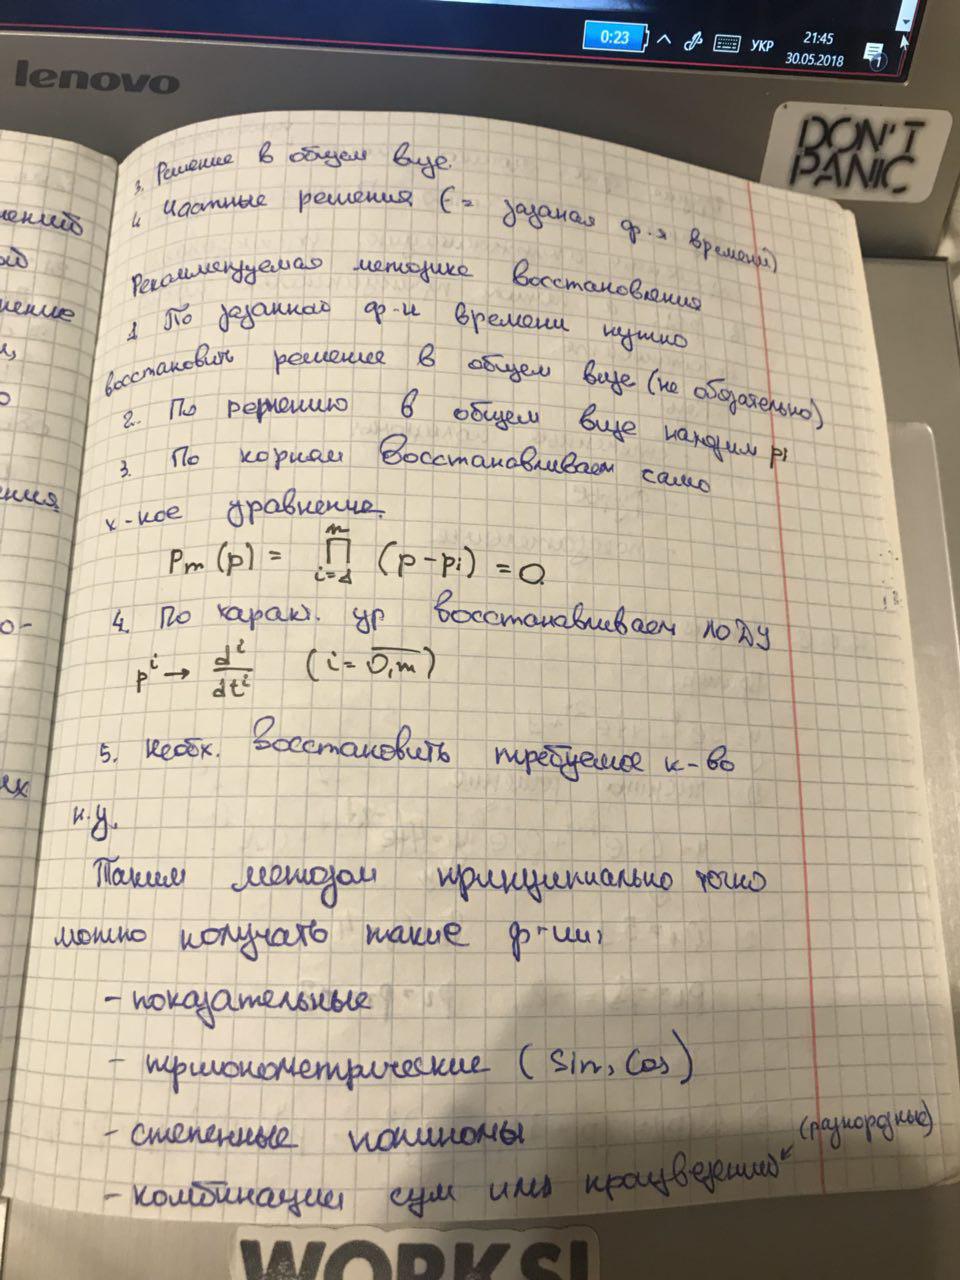 0:23
УКР
21:45
30.05.2018
1
lenovo
DON'T
PANIC
3. Решение в общем виде.
4. Частные решения (= заданая ф-я времени)
нений
ой
Рекоммендуемая методика восстановления
нение
1. По заданной ф-и времени нужно
и,
восстановить решение в общем виде (не обязательно)
о
2. По решению в общем виде находим pi
3. По корням восстанавливаем само
ения
х-кое уравнение.
Pm (p) = m ∏ i=1 (p-pi) = 0
4. По характ. ур восстанавливаем ЛОДУ
о-
p^i → d^i/dt^i (i = 0,m)
5. Необх. восстановить требуемое к-во
ых
н.у.
Таким методом принципиально точно
можно получать такие ф-ии:
- показательные
- тригонометрические (Sin, Cos)
- степенные полиномы
(разнородные)
- комбинации сум или произведений
WORKS!